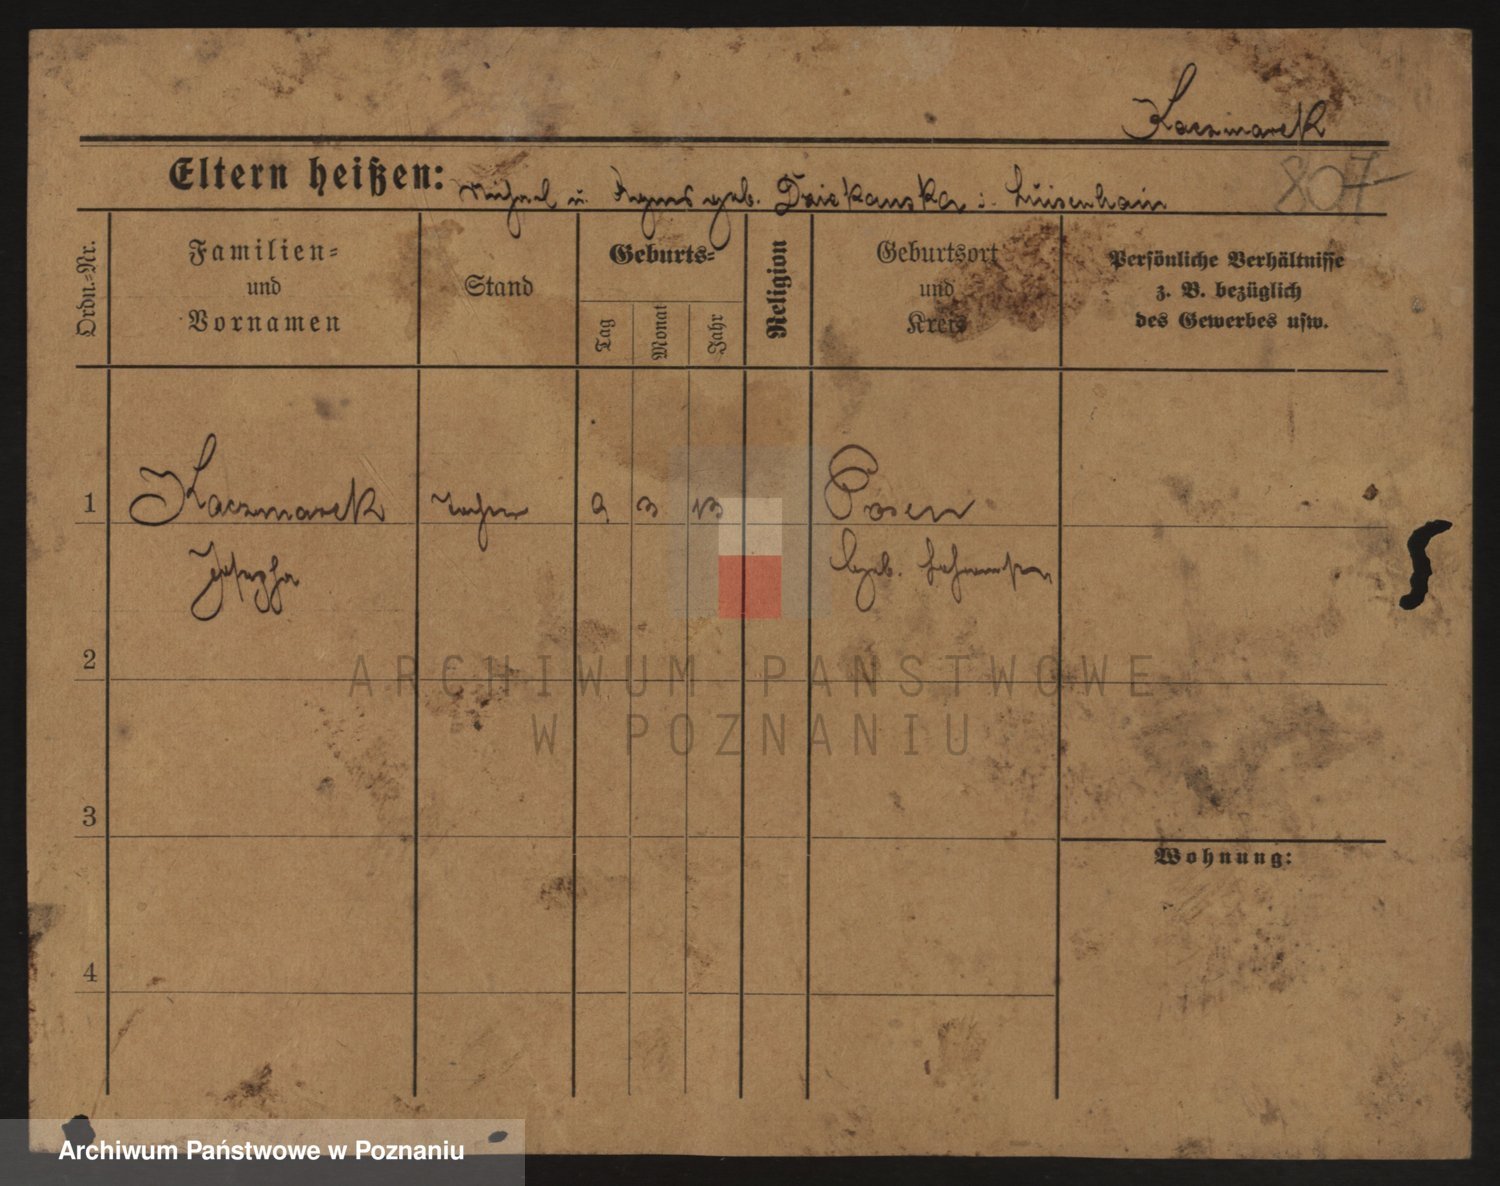 Kaczmarek
Eltern heißen: Michael u. Agnes geb. Dziekanska i. Luisenhain
807
Ordn.-Nr.
Familien-
und
Vornamen
Stand
Geburts-
Tag
Monat
Jahr
Religion
Geburtsort
und
Kreis
Persönliche Verhältnisse
z. B. bezüglich
des Gewerbes usw.
1 Kaczmarek 9 3 13 Posen
Josepha Hgeb.
2
ARCHIWUM PAŃSTWOWE
W POZNANIU
3
Wohnung:
4
Archiwum Państwowe w Poznaniu